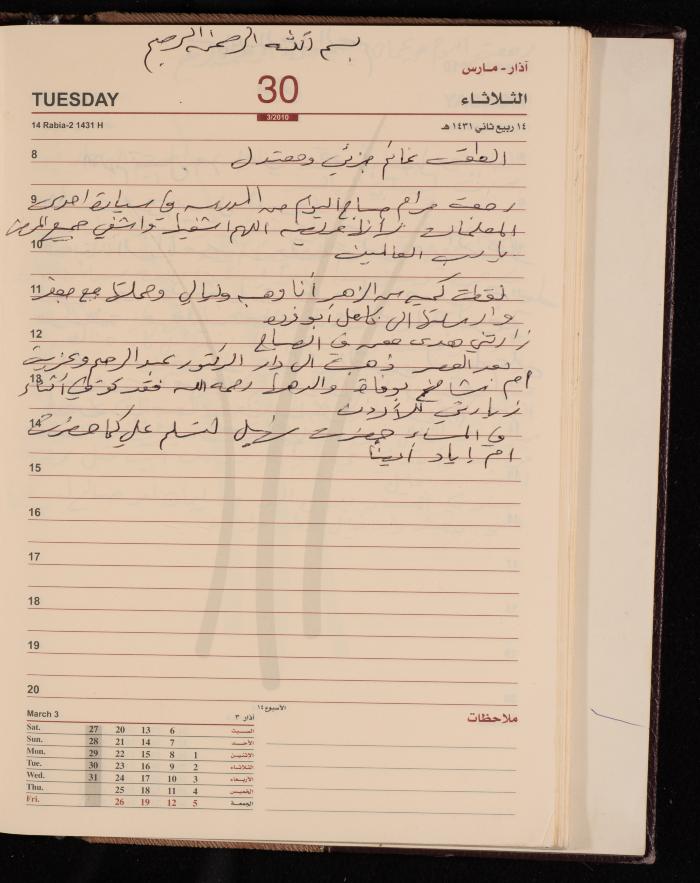 بسم الله الرحمن الرحيم
آذار - مارس
TUESDAY 30 الثلاثاء
3/2010
14 Rabia-2 1431 H ١٤ ربيع ثاني ١٤٣١ هـ
8 الطقس غائم جزئي ومعتدل
9 رجعت مرام صباح اليوم من المدرسة في سيارة احدى
المعلمات لأنها مريضه اللهم اشفيها واشفي جميع المرضى
10 يا رب العالمين
11 لقطت كمية من الزهر أنا وهبه وليالي وحملتها مع جعفر
وارسلتها الى كامل أبو قرده
12 زارتني هدى جعفر في الصباح
بعد العصر ذهبت الى دار الدكتور عبد الرحيم وعزيت
13 أم بوفاة والدها رحمه الله فقد توفي أثناء
زيارتي للأردن
14 في المساء حضرت لتسلم علي كما حضرت
ام إياد أيضاً
15
16
17
18
19
20
March 3 آذار ٣ الأسبوع ١٤ ملاحظات
Sat. 27 20 13 6 السبت
Sun. 28 21 14 7 الأحد
Mon. 29 22 15 8 1 الاثنين
Tue. 30 23 16 9 2 الثلاثاء
Wed. 31 24 17 10 3 الأربعاء
Thu. 25 18 11 4 الخميس
Fri. 26 19 12 5 الجمعة